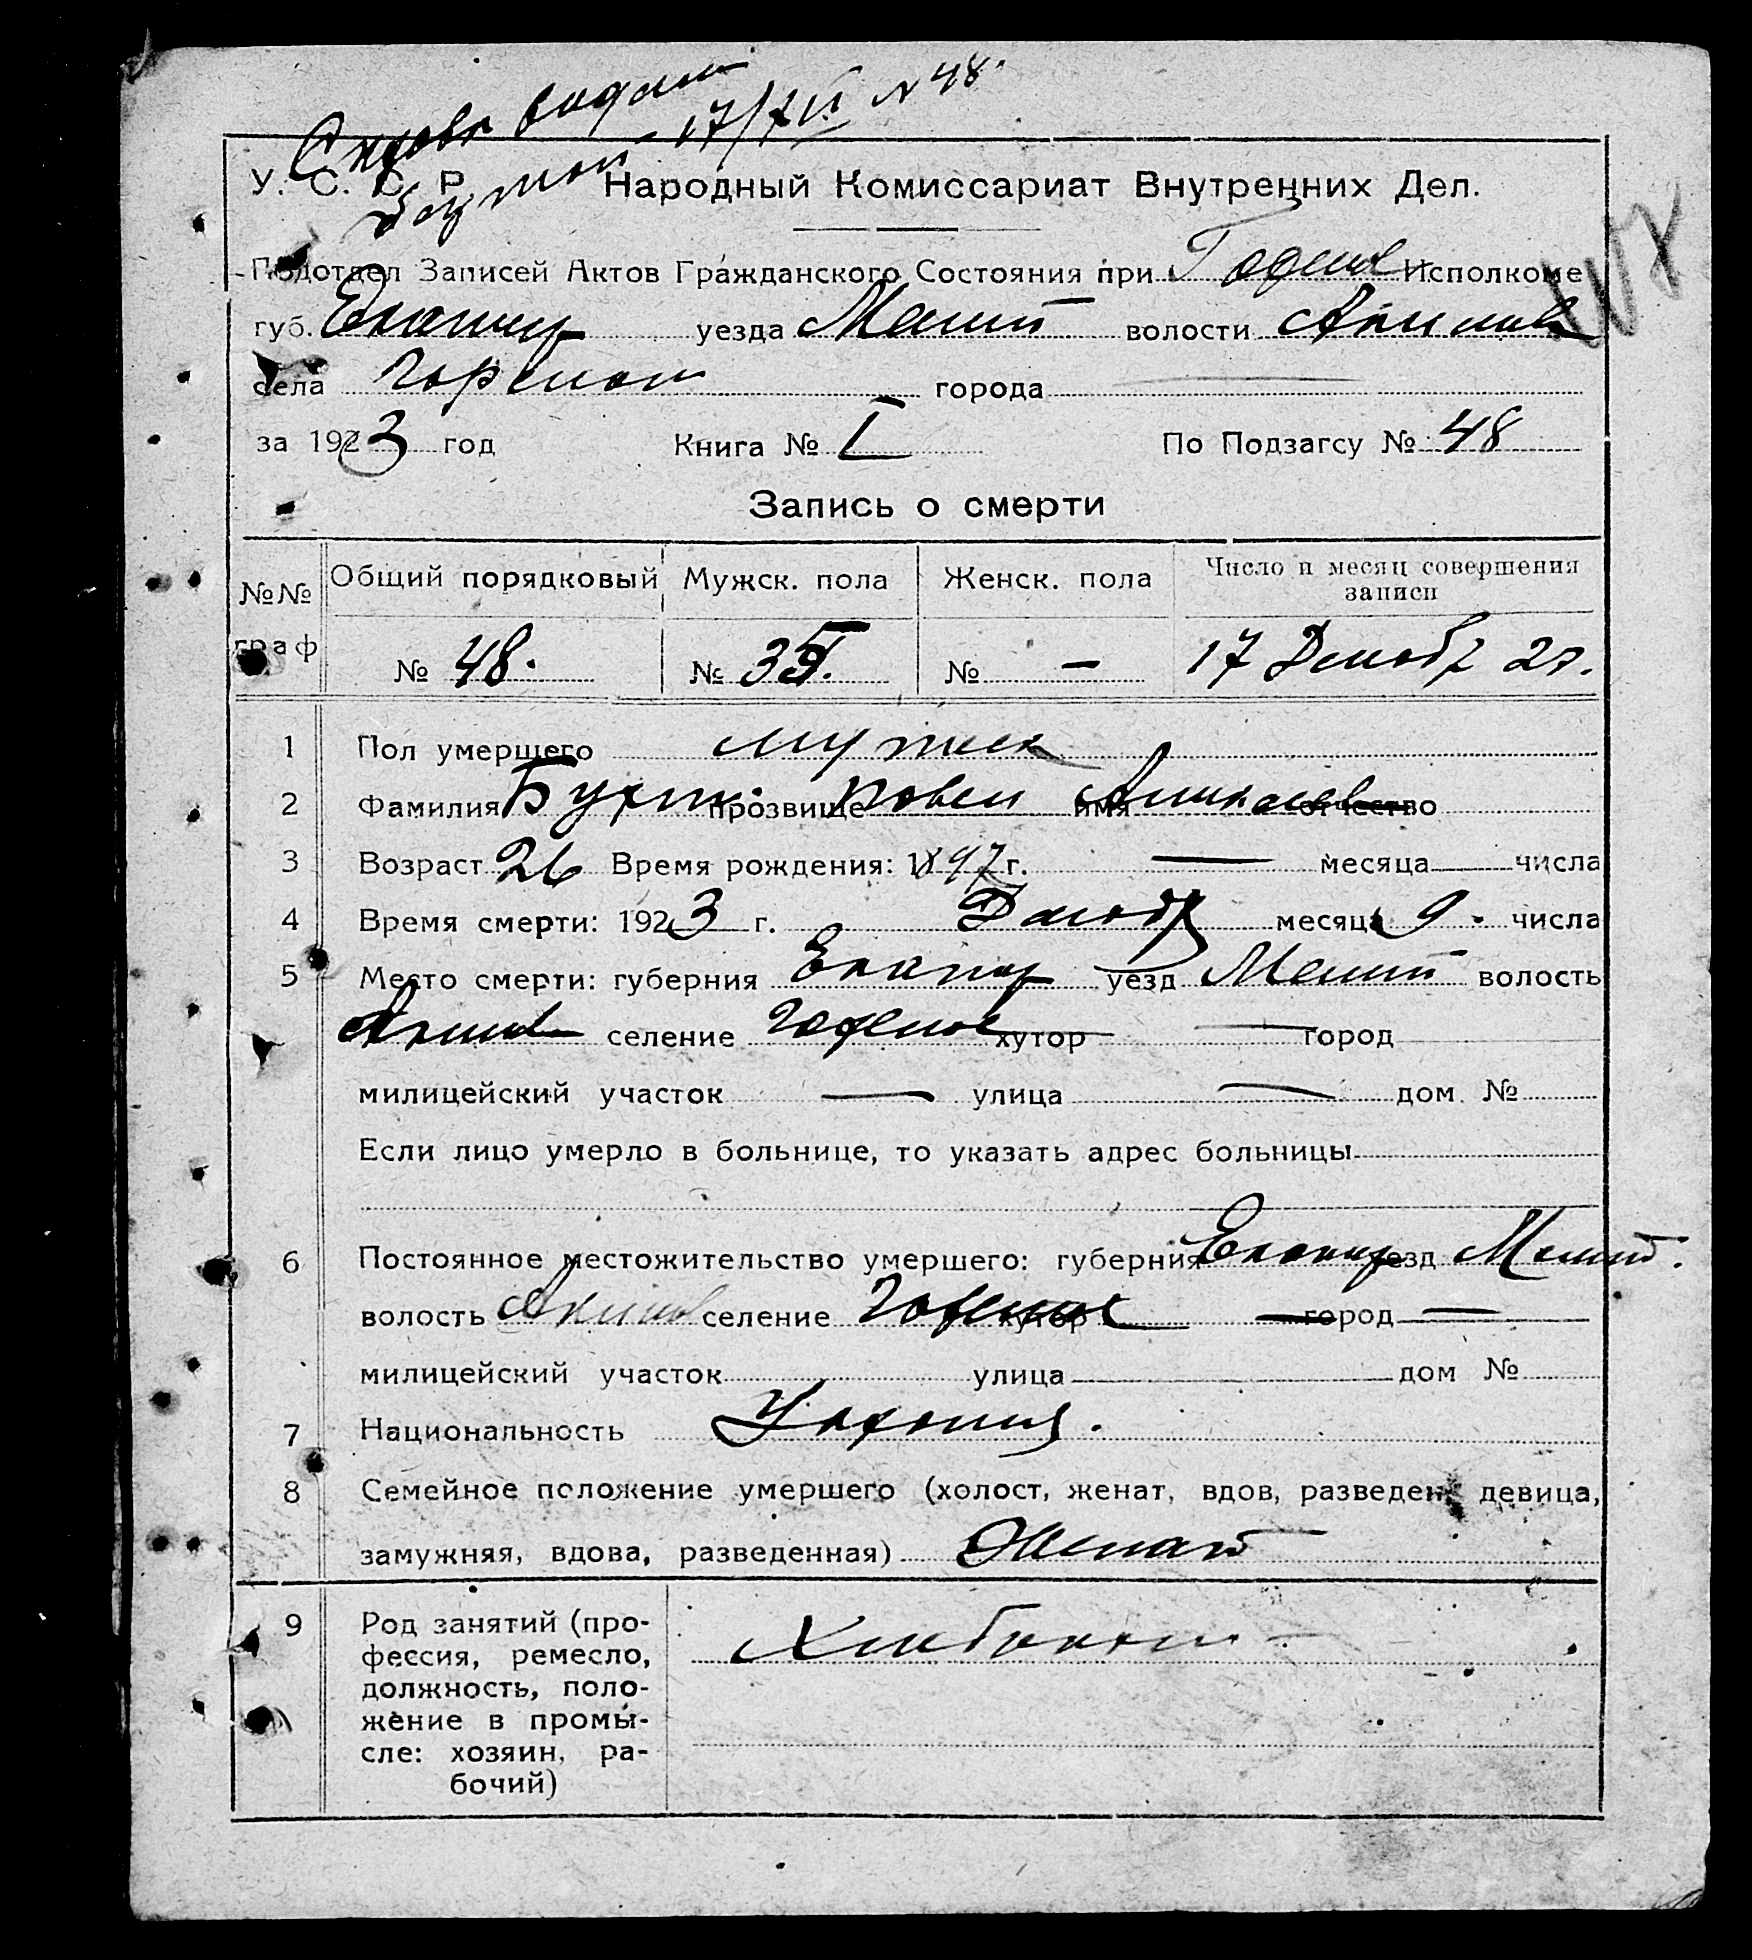 17/XII № 48.
У. С. С. Р. Народный Комиссариат Внутренних Дел.
Подотдел Записей Актов Гражданского Состояния при Исполкоме
губ. Екатер уезда Мелит волости Акимов
села города
за 1923 год Книга № I По Подзагсу № 48
Запись о смерти
№№ граф Общий порядковый Мужск. пола Женск. пола Число и месяц совершения записи
№ 48. № 35. № — 17 Декабр 23.
1 Пол умершего мужск
2 Фамилия прозвище Павел имя отчество
3 Возраст 26 Время рождения: 1897 г. — месяца — числа
4 Время смерти: 1923 г. Декабр месяца 9 числа
5 Место смерти: губерния Екатер уезд Мелит волость
Акимов селение хутор — город
милицейский участок — улица — дом №
Если лицо умерло в больнице, то указать адрес больницы
6 Постоянное местожительство умершего: губерния Екатер уезд Мелит.
волость Акимов селение хутор — город —
милицейский участок улица дом №
7 Национальность
8 Семейное положение умершего (холост, женат, вдов, разведен, девица,
замужняя, вдова, разведенная) Женат
9 Род занятий (про-
фессия, ремесло,
должность, поло-
жение в промы-
сле: хозяин, ра-
бочий)